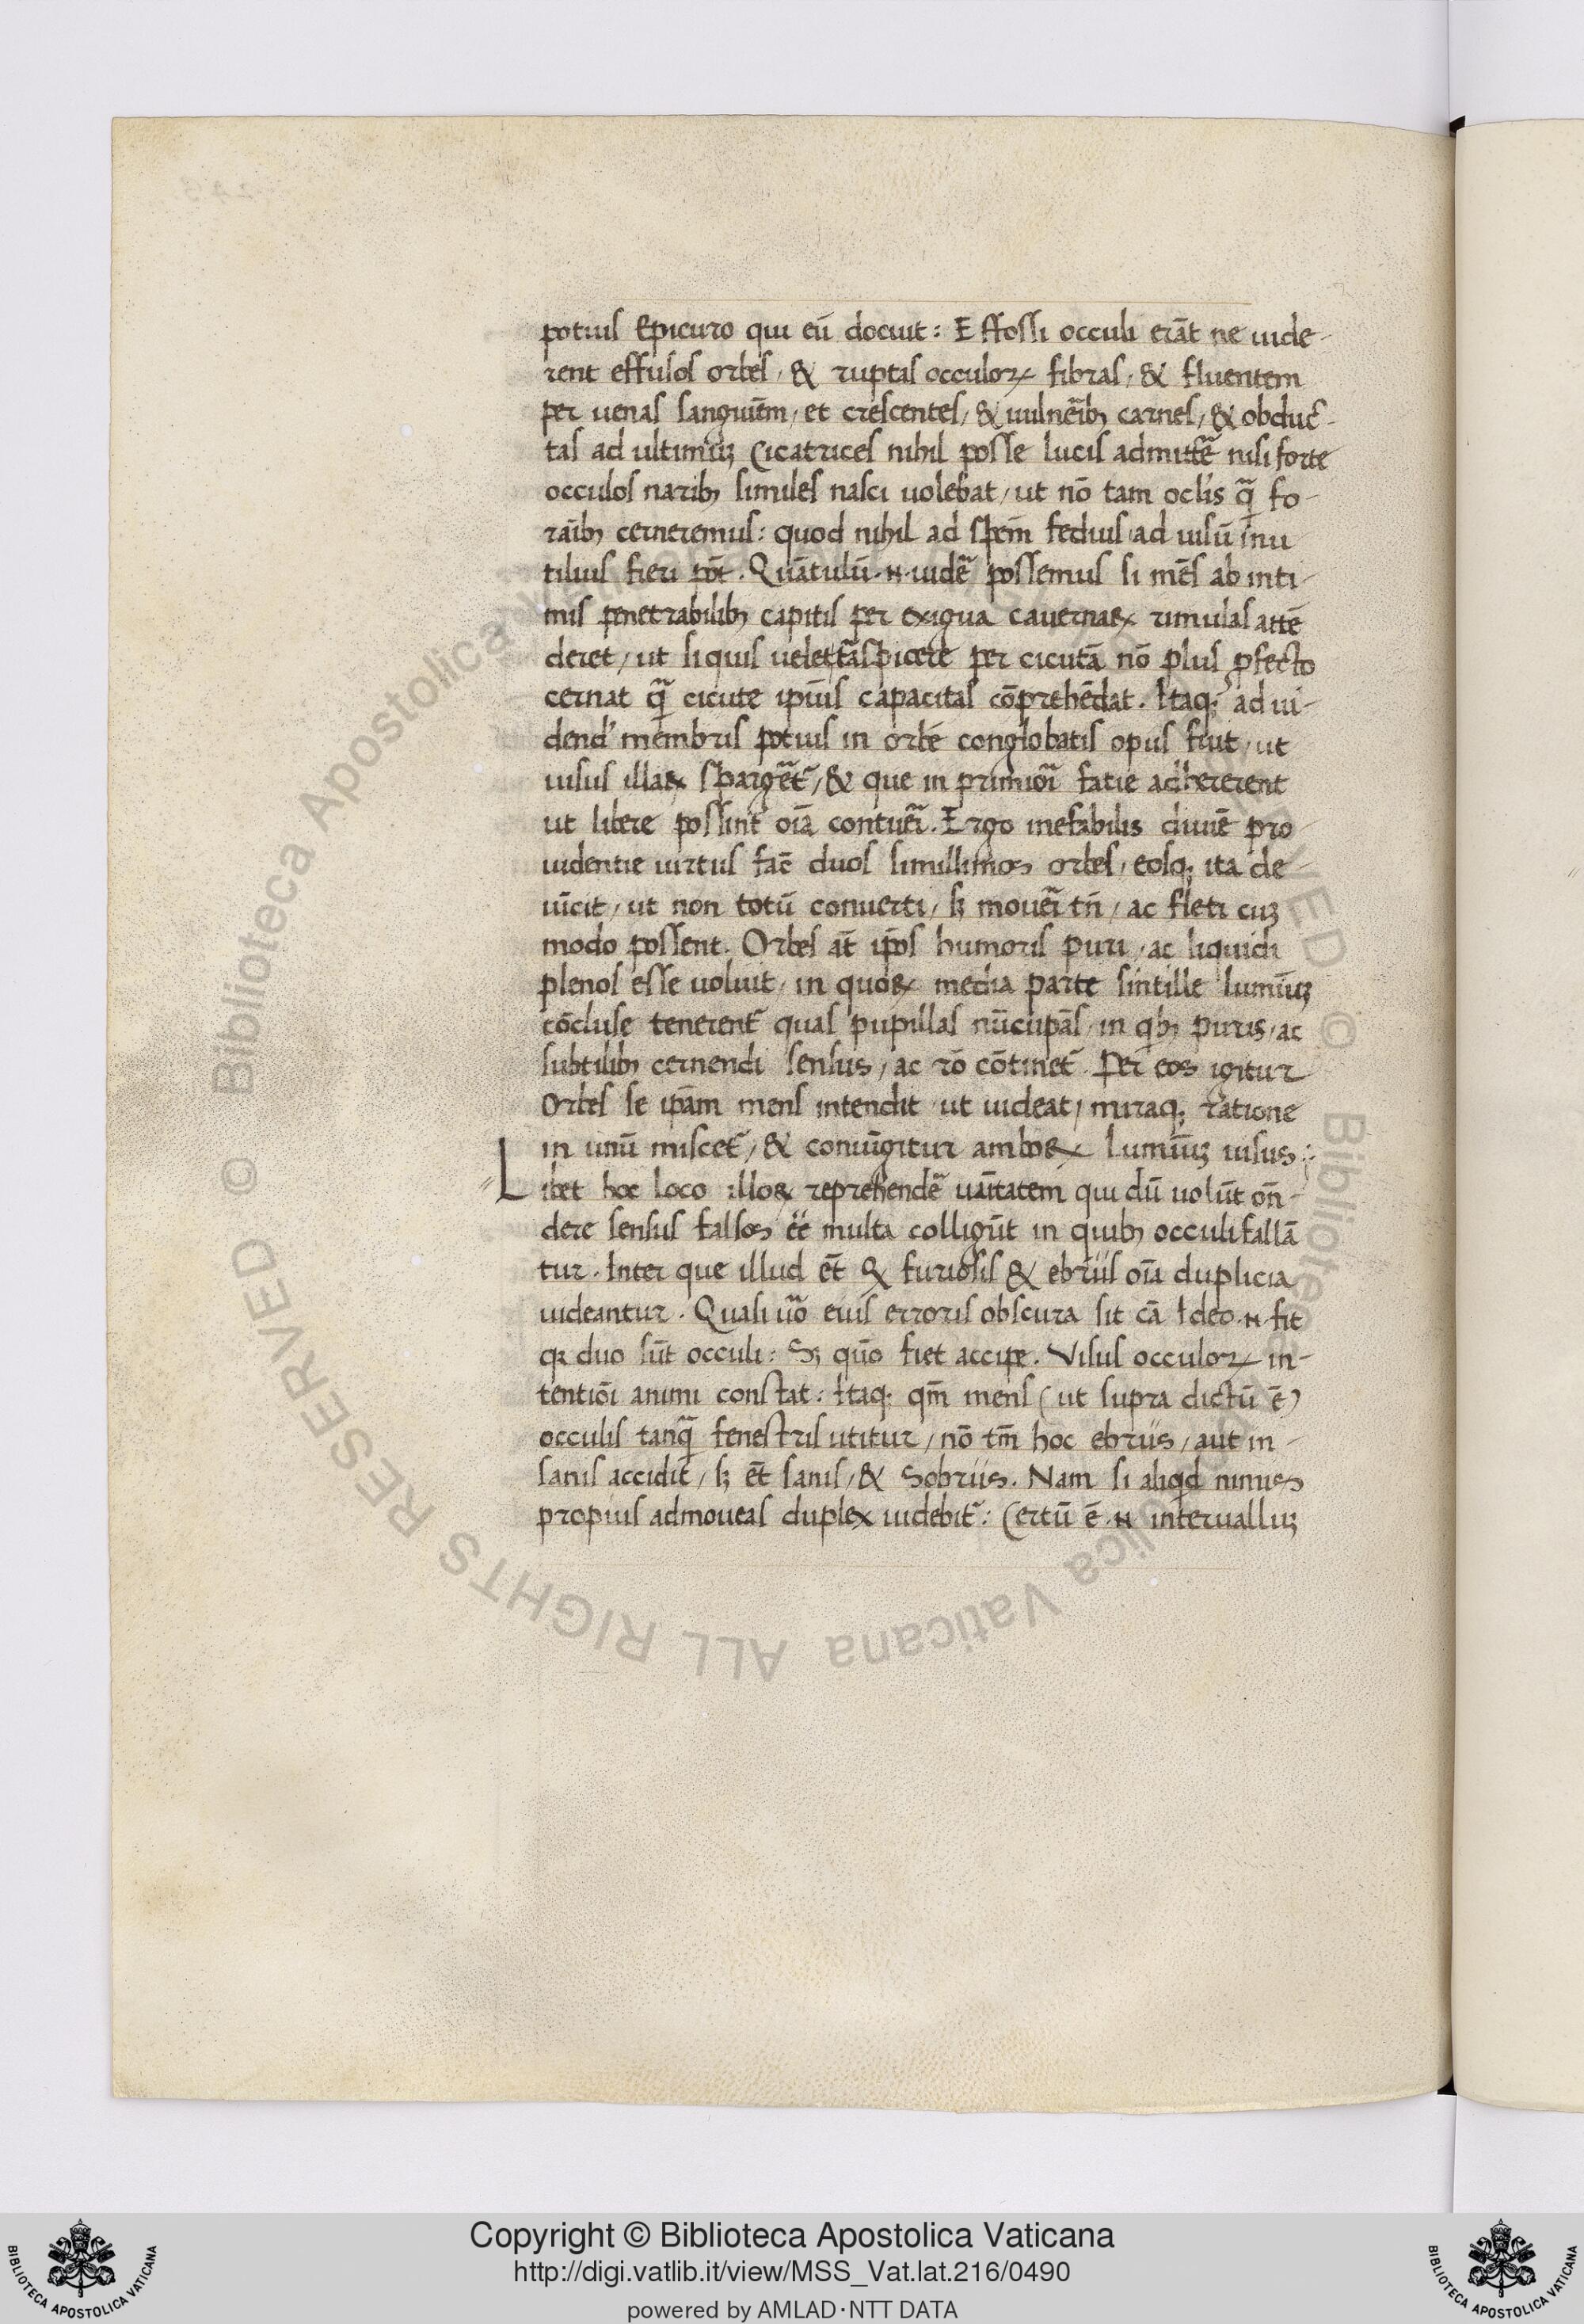 potius Epicuro qui eū docuit: Effossi occuli erāt ne uide-
rent effusos orbes, & ruptas occuloꝝ fibras, & fluentem
per uenas sanguīem, et crescentes, & uulnēib; carnes, & obduc̄-
tas ad ultimuꝫ Cicatrices nihil posse lucis admittē nisi forte
occulos narib; similes nasci uolebat, ut nō tam oclis q̄ fo-
rāib; cerneremus: quod nihil ad spēm fedius ad uisū inu
tilius fieri pōt. Quātulū .n. uidē possemus si mēs ab inti-
mis penetrabilib; capitis per exigua cauernaꝝ rimulas attē
deret, ut siquis uelet trāspicere per cicutā nō plus ꝓfecto
cernat q̄ cicute ipīus capacitas cōprehēdat. Itaq; ad ui-
dend' membris potius in orbē conglobatis opus fuit, ut
uisus illaꝝ spargēt̄, & que in primiori fatie adhererent
ut libere possint oīa contuēi. Ergo inefabilis diuīe pro-
uidentie uirtus fac̄ duos simillimos orbes, eosq; ita de-
uīcit, ut non totū conuerti, sꝫ mouēi tn̄, ac fleti cuꝫ
modo possent. Orbes at̄ ip̄os humoris puri, ac liquidi
plenos esse uoluit, in quoꝝ media parte sintille lumīuꝫ
cōcluse tenerent̄ quas pupillas nūcupās, in qb; puris, ac
subtilib; cernendi sensus, ac rō cōtinet̄. Per eos igitur
Orbes se ipām mens intendit ut uideat, miraq; ratione
in unū miscet̄, & coniūgitur amboꝝ Lumīuꝫ uisus:
Libet hoc loco illoꝝ reprehendē uāitatem qui dū uolūt on̄-
dere sensus falsos ēē multa colligūt in quib; occuli fallā
tur. Inter que illud et̄ ꝙ furiosis & ebriis oīa duplicia
uideantur. Quasi uō eius erroris obscura sit cā Ideo .n. fit
qꝛ duo sūt occuli: Sꝫ quō fiet accipe. Visus occuloꝝ in-
tentiōi animi constat: Itaq; qm̄ mens (ut supra dictū ē)
occulis tanq̄ fenestris utitur, nō tm̄ hoc ebriis, aut in-
sanis accidit, sꝫ et̄ sanis, & Sobriis. Nam si aliqd nimis
propius admoueas duplex uidebit̄: Certū ē .n. interualluꝫ
Copyright © Biblioteca Apostolica Vaticana
http://digi.vatlib.it/view/MSS_Vat.lat.216/0490
powered by AMLAD·NTT DATA
BIBLIOTECA APOSTOLICA VATICANA
BIBLIOTECA APOSTOLICA VATICANA